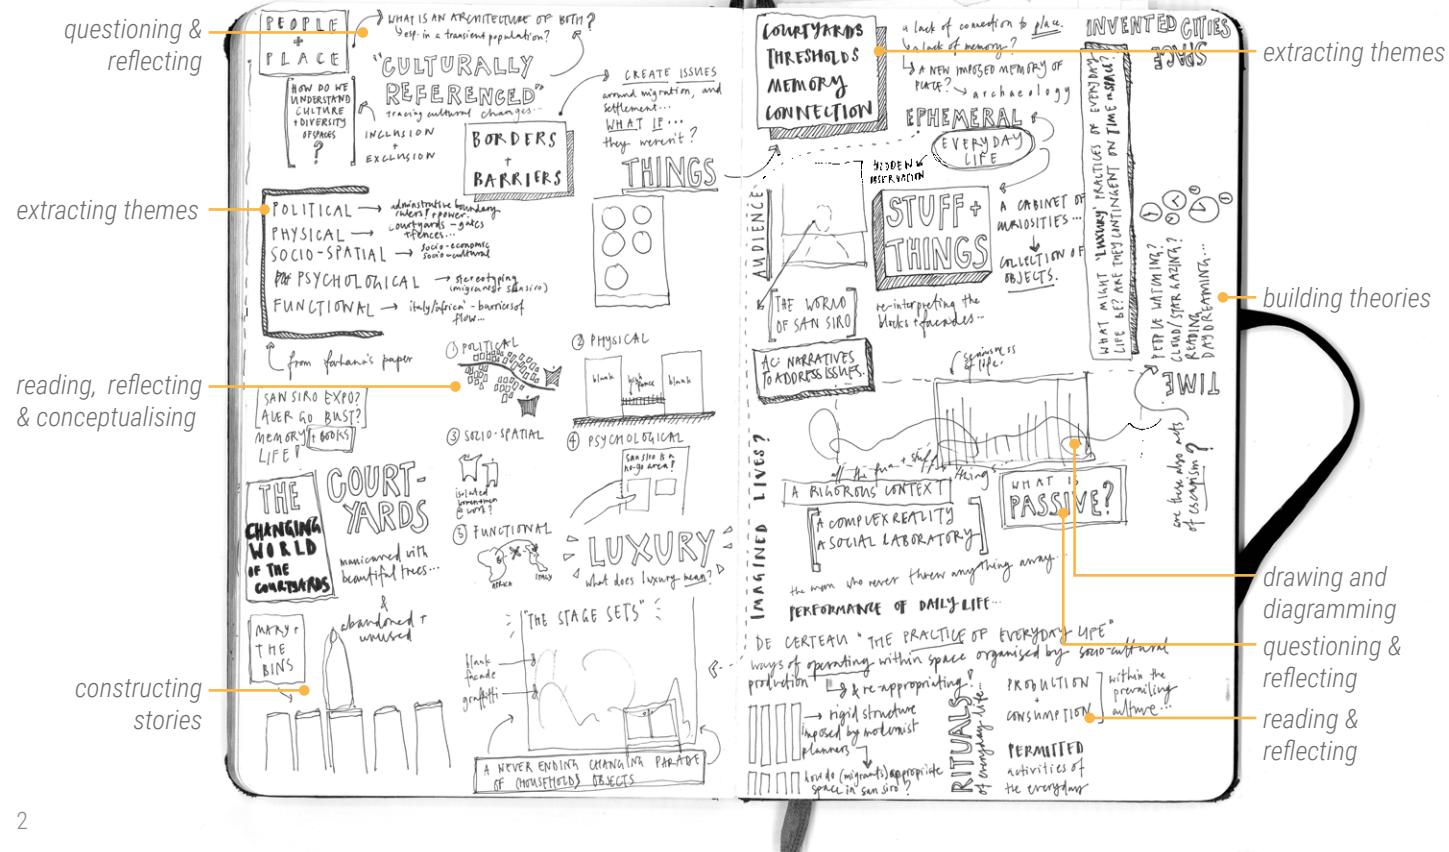 questioning &
reflecting
extracting themes
reading, reflecting
& conceptualising
constructing
stories
2
PEOPLE
+
PLACE
WHAT IS AN ARCHITECTURE OF BOTH?
esp. in a transient population?
"CULTURALLY
REFERENCED"
tracing cultural changes...
HOW DO WE
UNDERSTAND
CULTURE
+ DIVERSITY
OF SPACES
?
INCLUSION
+
EXCLUSION
BORDERS
+
BARRIERS
CREATE ISSUES
around migration, and
settlement...
WHAT IF...
they weren't?
THINGS
POLITICAL → administrative boundary
rulers? + power.
PHYSICAL → courtyards - gates
+ fences...
SOCIO-SPATIAL → socio-economic
socio-cultural
PSYCHOLOGICAL → stereotyping
(migrants + san siro)
FUNCTIONAL → italy/africa - barriers of
flow...
from farhana's paper
SAN SIRO EXPO?
AUER GO BUST?
MEMORY + BOOKS
LIFE!
① POLITICAL
② PHYSICAL
blank
blank
③ SOCIO-SPATIAL
isolated
④ PSYCHOLOGICAL
san siro is a
no-go area?
⑤ FUNCTIONAL
AFRICA
ITALY
THE
CHANGING
WORLD
OF THE
COURTYARDS
COURT-
YARDS
manicured with
beautiful trees...
&
abandoned +
unused
LUXURY
what does luxury mean?
MARY +
THE
BINS
"THE STAGE SETS"
blank
facade
graffiti
A NEVER ENDING CHANGING PARADE
OF (HOUSEHOLD) OBJECTS
COURTYARDS
THRESHOLDS
MEMORY
CONNECTION
a lack of connection to place.
a lack of memory?
A NEW IMPOSED MEMORY OF
PLACE? → archaeology
INVENTED CITIES
SPACE
EPHEMERAL
EVERYDAY
LIFE
HIDDEN
OBSERVATION
AUDIENCE
STUFF +
THINGS
A CABINET OF
CURIOSITIES...
COLLECTION OF
OBJECTS.
WHAT MIGHT 'LUXURY' PRACTICES OF EVERYDAY
LIFE BE? ARE THEY CONTINGENT ON TIME + SPACE?
PEOPLE WATCHING?
CLOUD/STAR GAZING?
READING
DAYDREAMING...
TIME
THE WORLD
OF SAN SIRO
re-interpreting the
blocks + facades...
AC: NARRATIVES
TO ADDRESS ISSUES.
of life.
IMAGINED LIVES?
all the fun + stuff
things
A RIGOROUS CONTEXT
A COMPLEX REALITY
A SOCIAL LABORATORY
WHAT IS
PASSIVE?
are these also acts
of escapism?
the man who never threw anything away...
PERFORMANCE OF DAILY LIFE...
DE CERTEAU "THE PRACTICE OF EVERYDAY LIFE"
ways of operating within space organised by socio-cultural
production
& re-appropriating?
→ rigid structure
imposed by modernist
planners
how do (migrants) appropriate
space in san siro?
RITUALS
of everyday life...
PRODUCTION
+
CONSUMPTION
within the
prevailing
culture...
PERMITTED
activities of
the everyday
extracting themes
building theories
drawing and
diagramming
questioning &
reflecting
reading &
reflecting